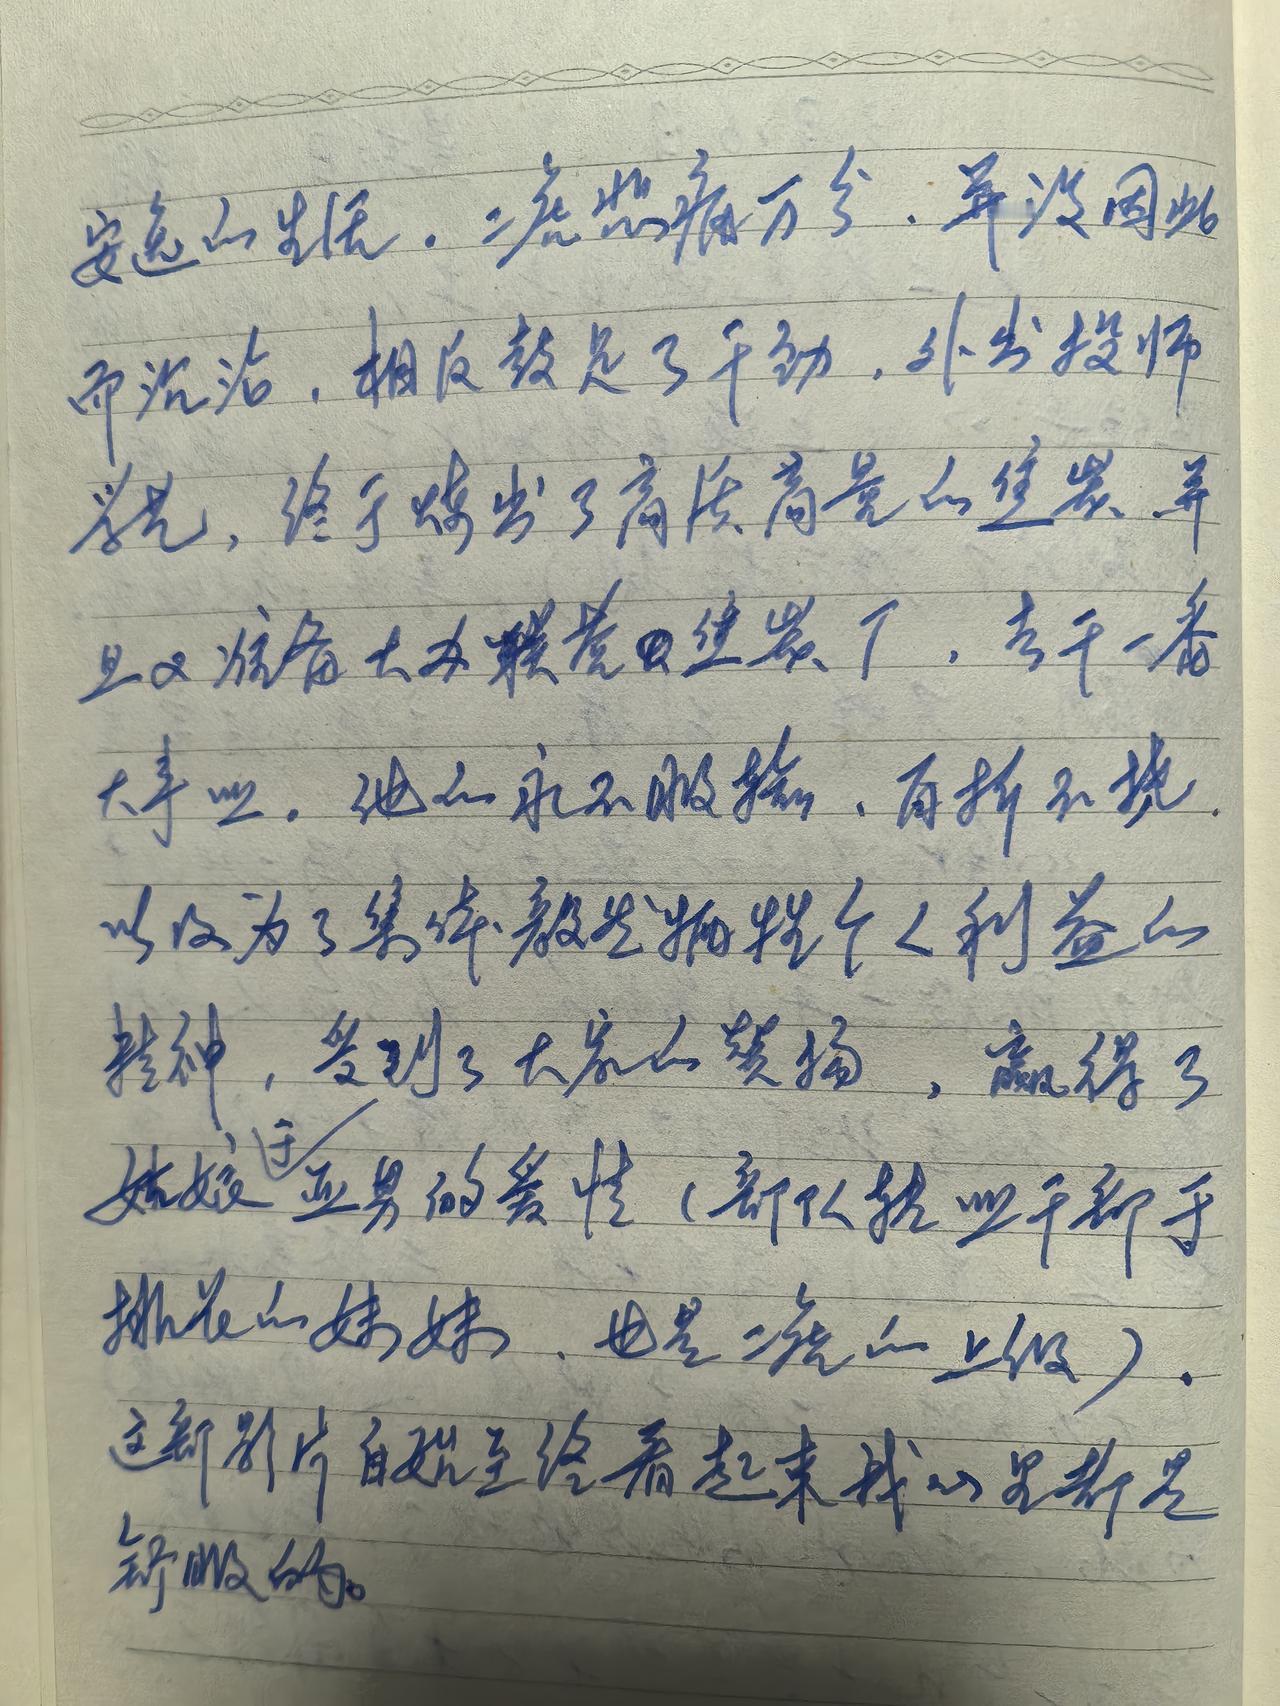 安逸的生活。二虎悲痛万分，并没因此
而沉沦，相反鼓足了干劲，外出投师
学艺，终于炼出了高质高量的焦炭，并
且又准备大办联营焦炭厂，去干一番
大事业。他的永不服输、百折不挠，
以及为了集体敢于牺牲个人利益的
精神，受到了大家的赞扬，赢得了
姑娘于亚男的爱情（部队转业干部于
排长的妹妹，也是二虎的上级）。
这部影片自始至终看起来我的心都是
舒服的。